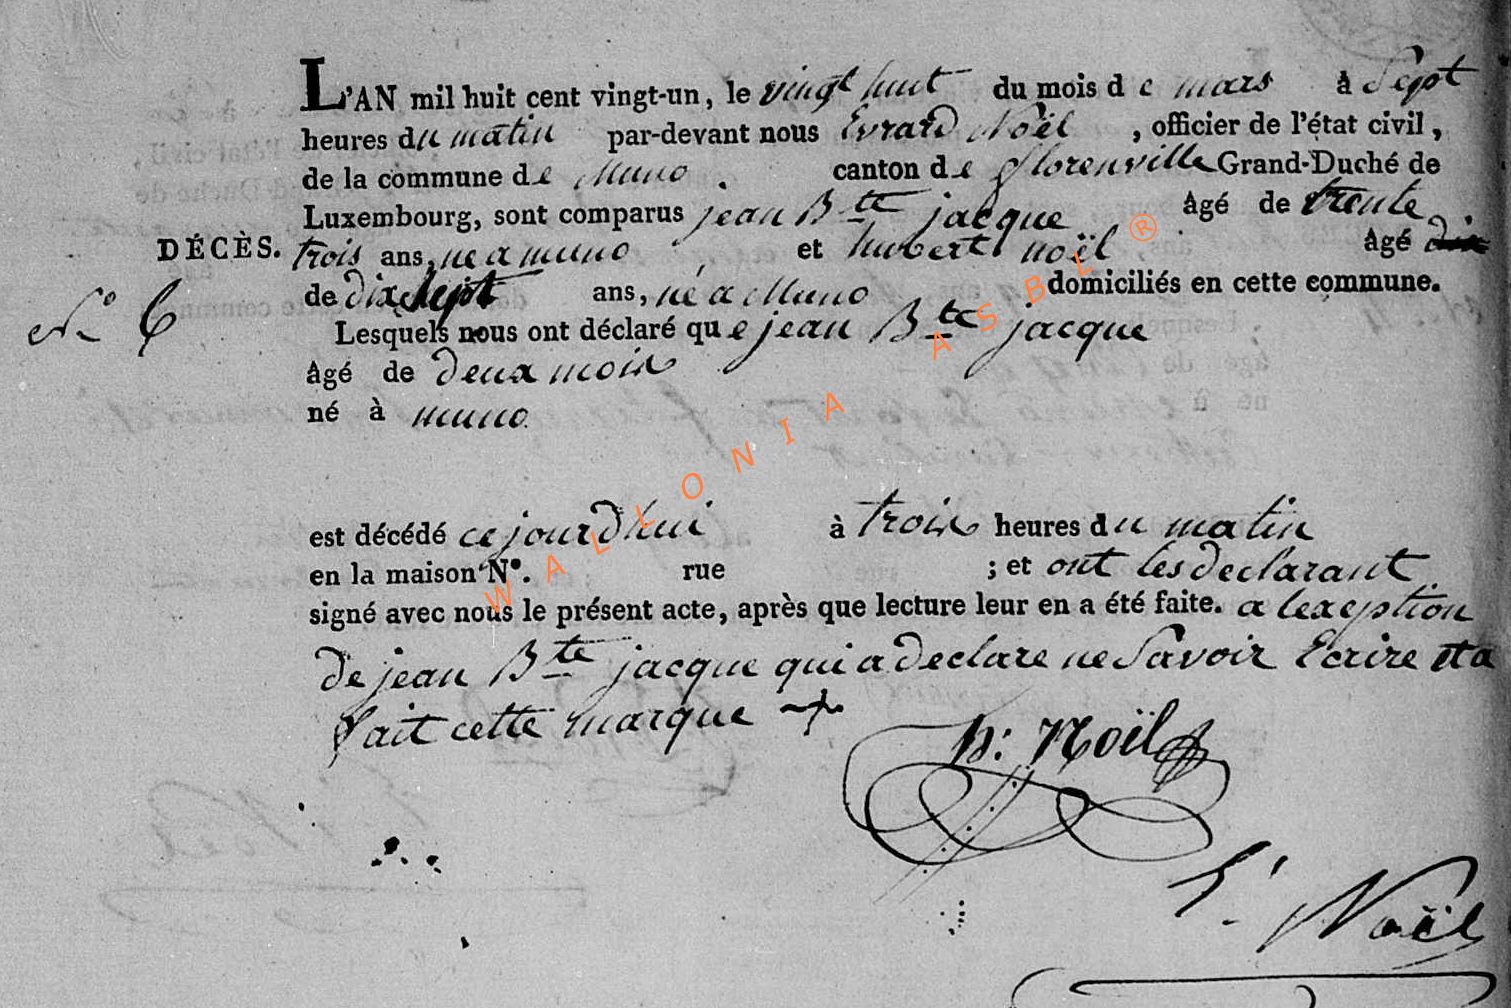 L'AN mil huit cent vingt-un, le vingt huit du mois de mars à Sept
heures du matin par-devant nous Evrard Noël , officier de l'état civil,
de la commune de Muno . canton de florenville Grand-Duché de
Luxembourg, sont comparus jean Bte jacque âgé de trente
DÉCÈS. trois ans, ne a muno et hubert noël âgé dix
de dix Sept ans, né a Muno domiciliés en cette commune.
No 6
Lesquels nous ont déclaré que jean Bte jacque
âgé de deux mois
né à muno
est décédé ce jourdhui à trois heures du matin
en la maison No. rue ; et ont les declarant
signé avec nous le présent acte, après que lecture leur en a été faite. a lexeption
de jean Bte jacque qui a declare ne Savoir Ecrire et a
fait cette marque +
h: Noël
E. Noël
WALLONIA ASBL ®